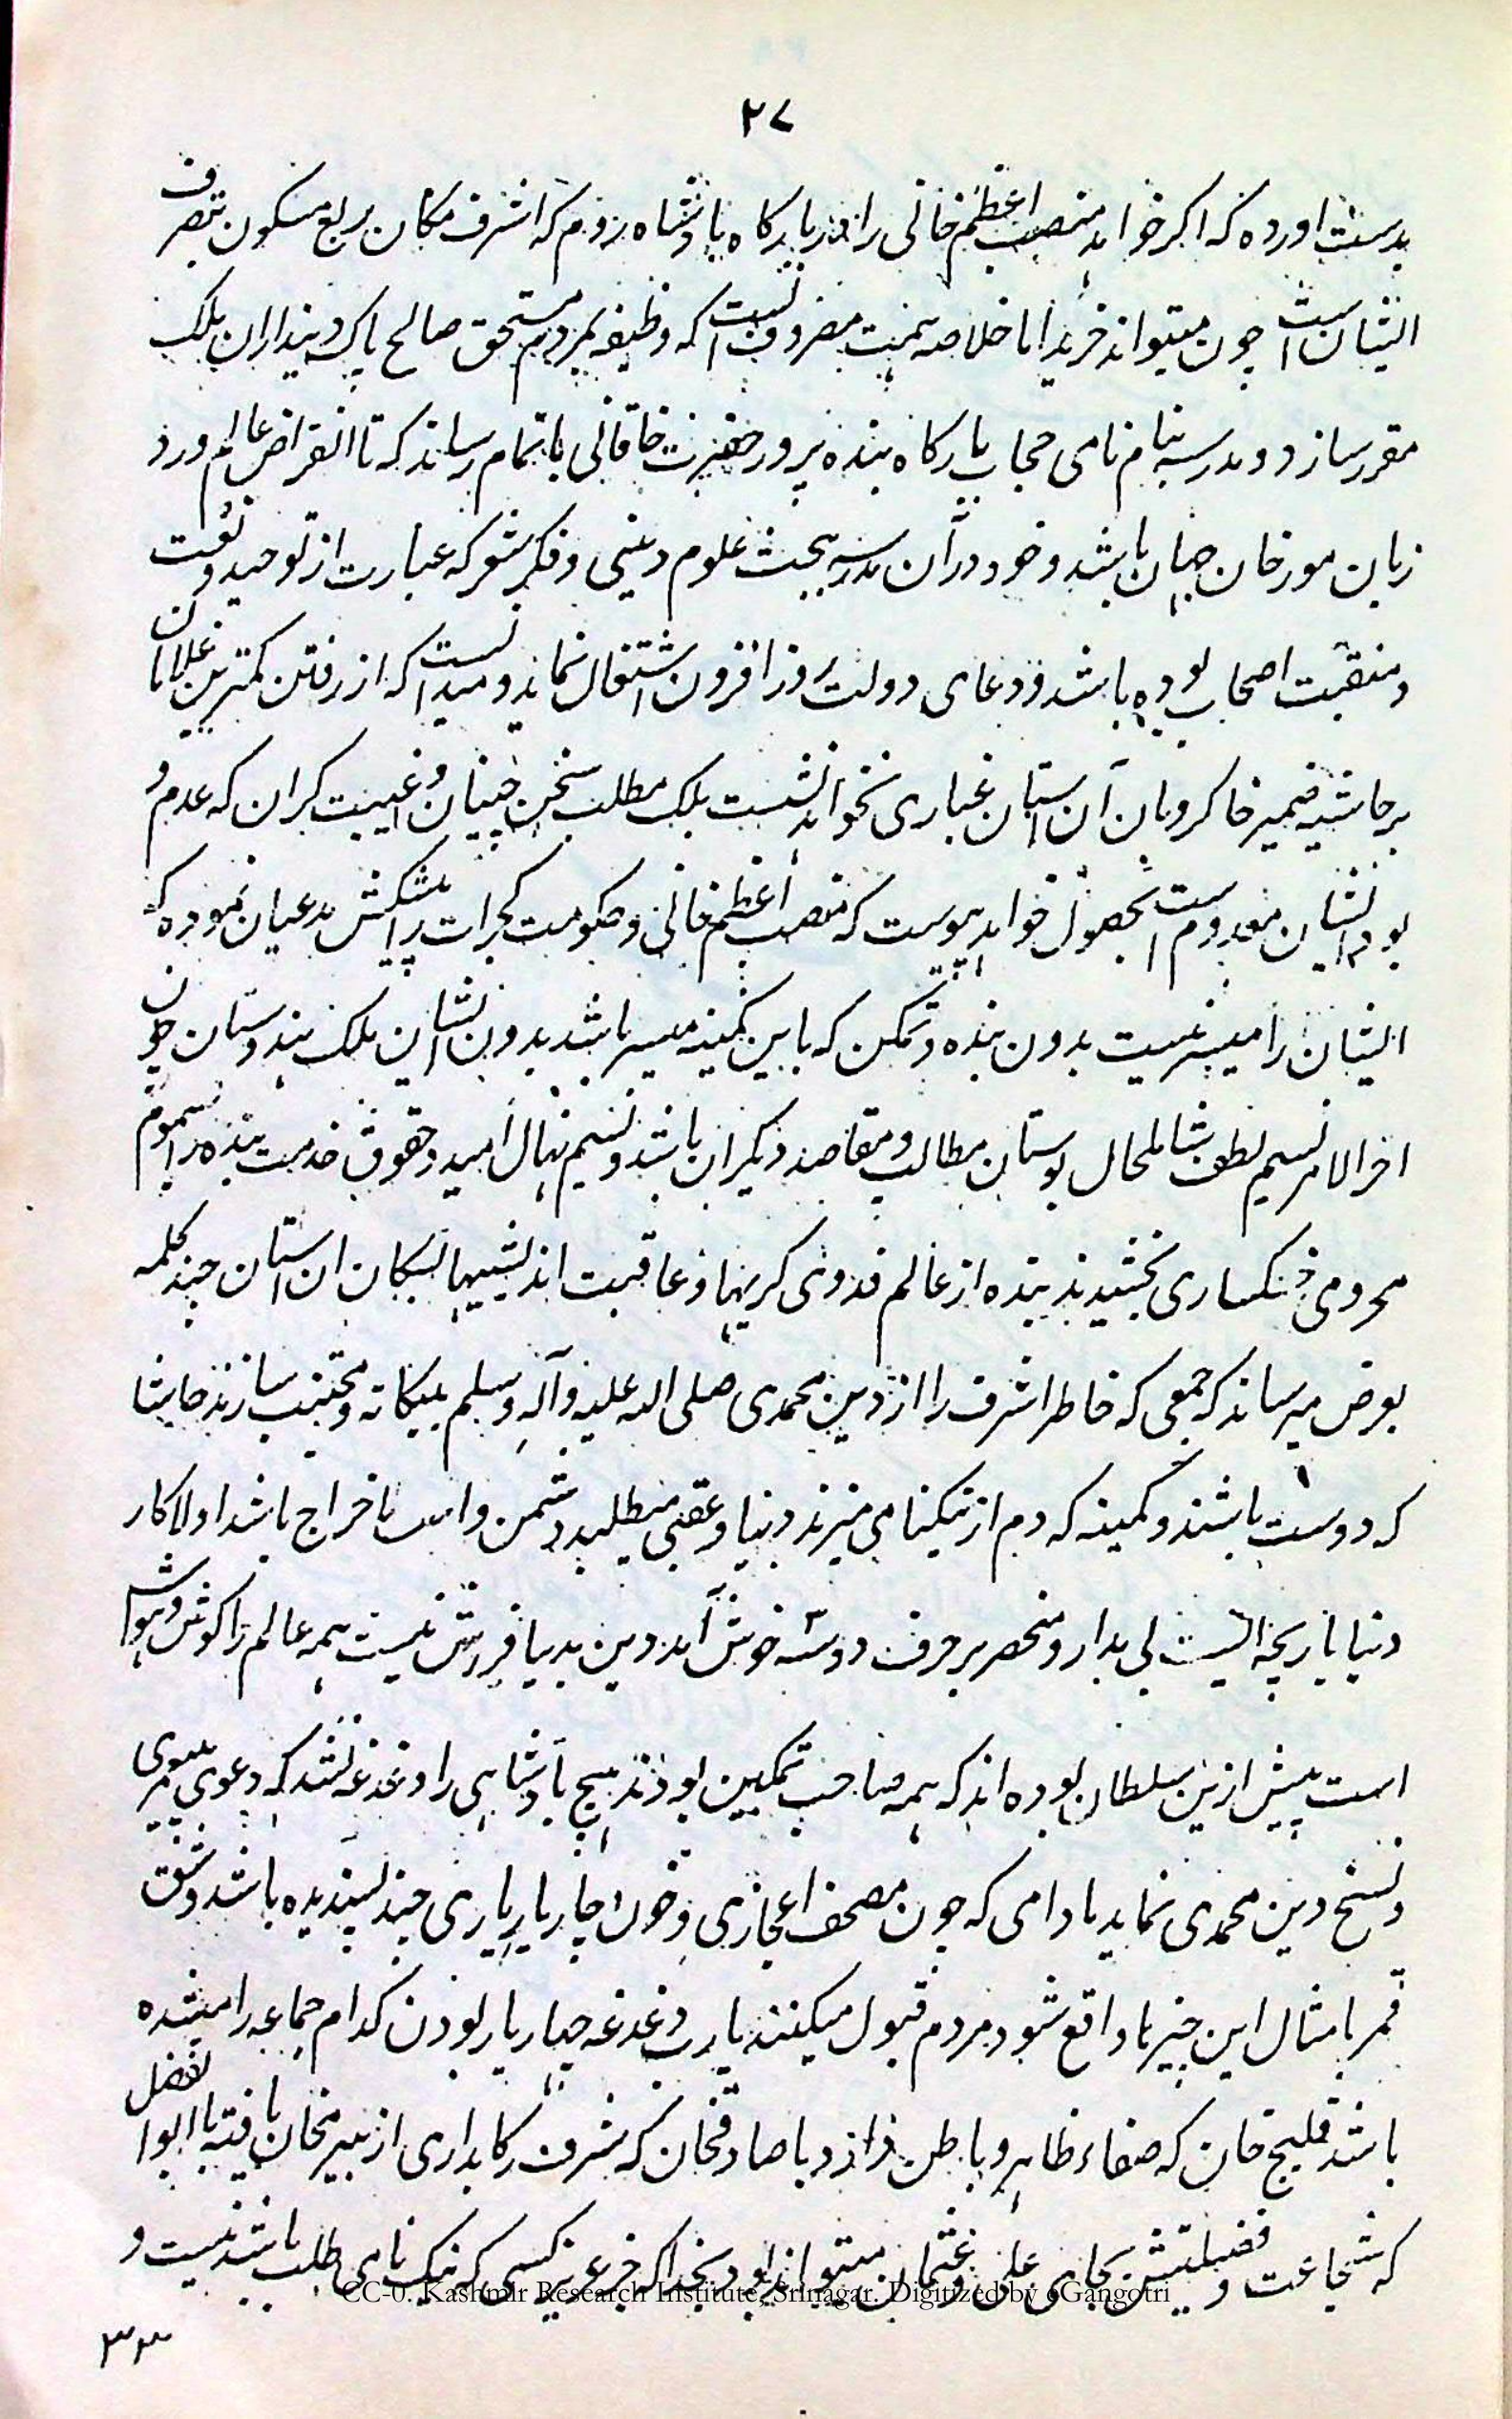 ۲۷
بدست اورده که اکر خواهد منصب اعظم خانی را در بارکاه پادشاه روم که اشرف مکان ربع مسکون بتصرف
ایشان است چون میتواند خرید اما خلاصه همت مصروف انست که وظیفه بمردم مستحق صالح پاک دینداران بلک
مقرر سازد و مدرسه بنام نامی حجاب بارکاه بنده پرور حضرت خاقانی باتمام رساند که تا انقراض عالم ورد
زبان مورخان جهان باشد و خود در آن مدرسه ببحث علوم دینی و فکر شعر که عبارت از توحید و نعت
و منقبت اصحاب بوده باشد و دعای دولت روز افزون اشتغال نماید و میدانست که از رفتن کمترین غلامان
بر حاشیه ضمیر خاکروبان آن استان غباری نخواهد نشست بلک مطلب سخن چینان و غیبت کران که عدم و
بود ایشان معدوم است بحصول خواهد پیوست که منصب اعظم خانی و حکومت کجرات را پیشکش مدعیان نموده که
ایشان را میسر نیست بدون بنده و تمکن که باین کمینه میسر باشد بدون ایشان ملک هندوستان چون
اخر الامر نسیم لطف شامل حال بوستان مطالب و مقاصد دیکران باشد و نسیم نهال امید و حقوق خدمت بنده را بسموم
محرومی خنکساری بخشیدند بنده از عالم فدوی کریها و عاقبت اندیشیها سکان ان استان چند کلمه
بعرض میرساند که جمعی که خاطر اشرف را از دین محمدی صلی الله علیه وآله وسلم بیکانه و مجتنب سازند حاشا
که دوست باشند و کمینه که دم از نیکنامی میزند دنیا و عقبی میطلبد دشمن و اخراج باشد اولا کار
دنیا بازیچه ایست بی مدار و منحصر بر حرف دو سه خوش آمد دین بدنیا فروش نیست همه عالم را کوش و هوش
است پیش ازین سلطان بوده اند که همه صاحب تمکین بودند هیچ پادشاهی را دغدغه نشد که دعوی پیغمبری
و نسخ دین محمدی نماید مادامی که چون مصحف اعجازی و چون چار یار یاری چند پسندیده باشد و شق
قمر بامثال این چیزها واقع شود مردم قبول میکنند یارب دغدغه چهار یار بودن کدام جماعه را میشده
باشد قلیج خان که صفاء ظاهر و باطن دارد یا صادقخان که شرف رکابداری از بیرمخان یافته یا ابوالفضل
که شجاعت و فضیلتش بجای علی و عثمان میتواند بود بخدا که جز عزیز کسی که نیک نامی طلب باشد نیست و
CC-0. Kashmir Research Institute, Srinagar. Digitized by eGangotri